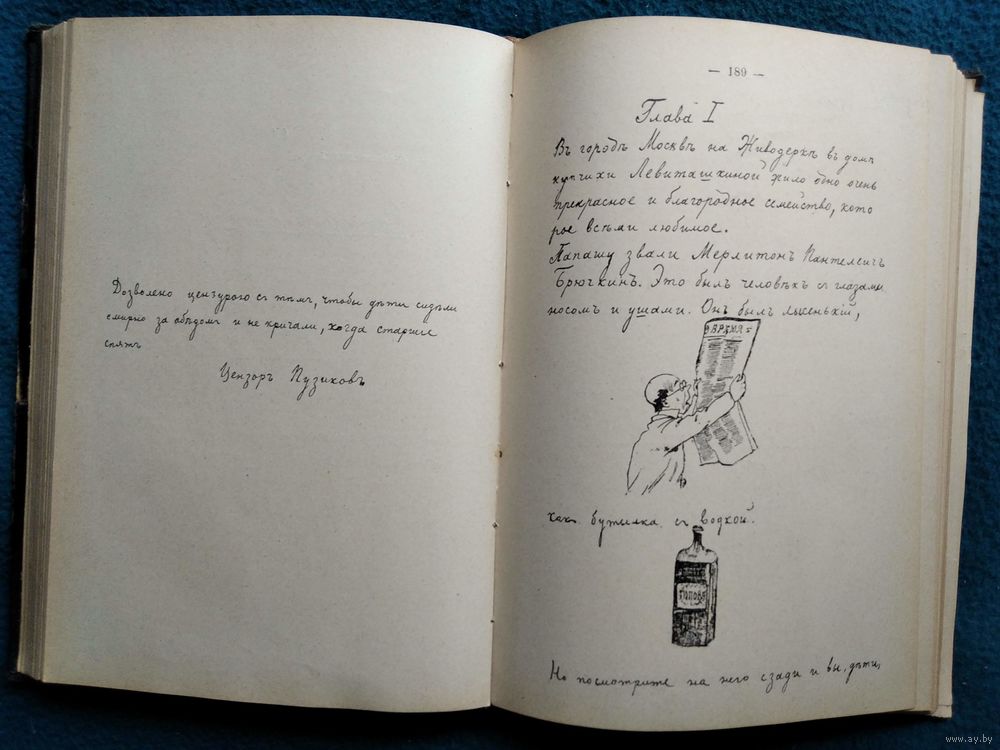 Дозволено цензурою съ тѣмъ, чтобы дѣти сидѣли
смирно за обѣдомъ и не кричали, когда старшіе
спятъ
Цензоръ Пузиковъ
— 189 —
Глава I
Въ городѣ Москвѣ на Живодеркѣ въ домѣ
купчихи Левиташкиной жило одно очень
прекрасное и благородное семейство, кото
рое всѣми любимое.
Папашу звали Мерлитонъ Пантелеичъ
Брючкинъ. Это былъ человѣкъ съ глазами
носомъ и ушами. Онъ былъ лысенькій,
ВРЕМЯ
какъ бутылка съ водкой.
ПОПОВА
Но посмотрите на него сзади и вы, дѣти,
www.ay.by